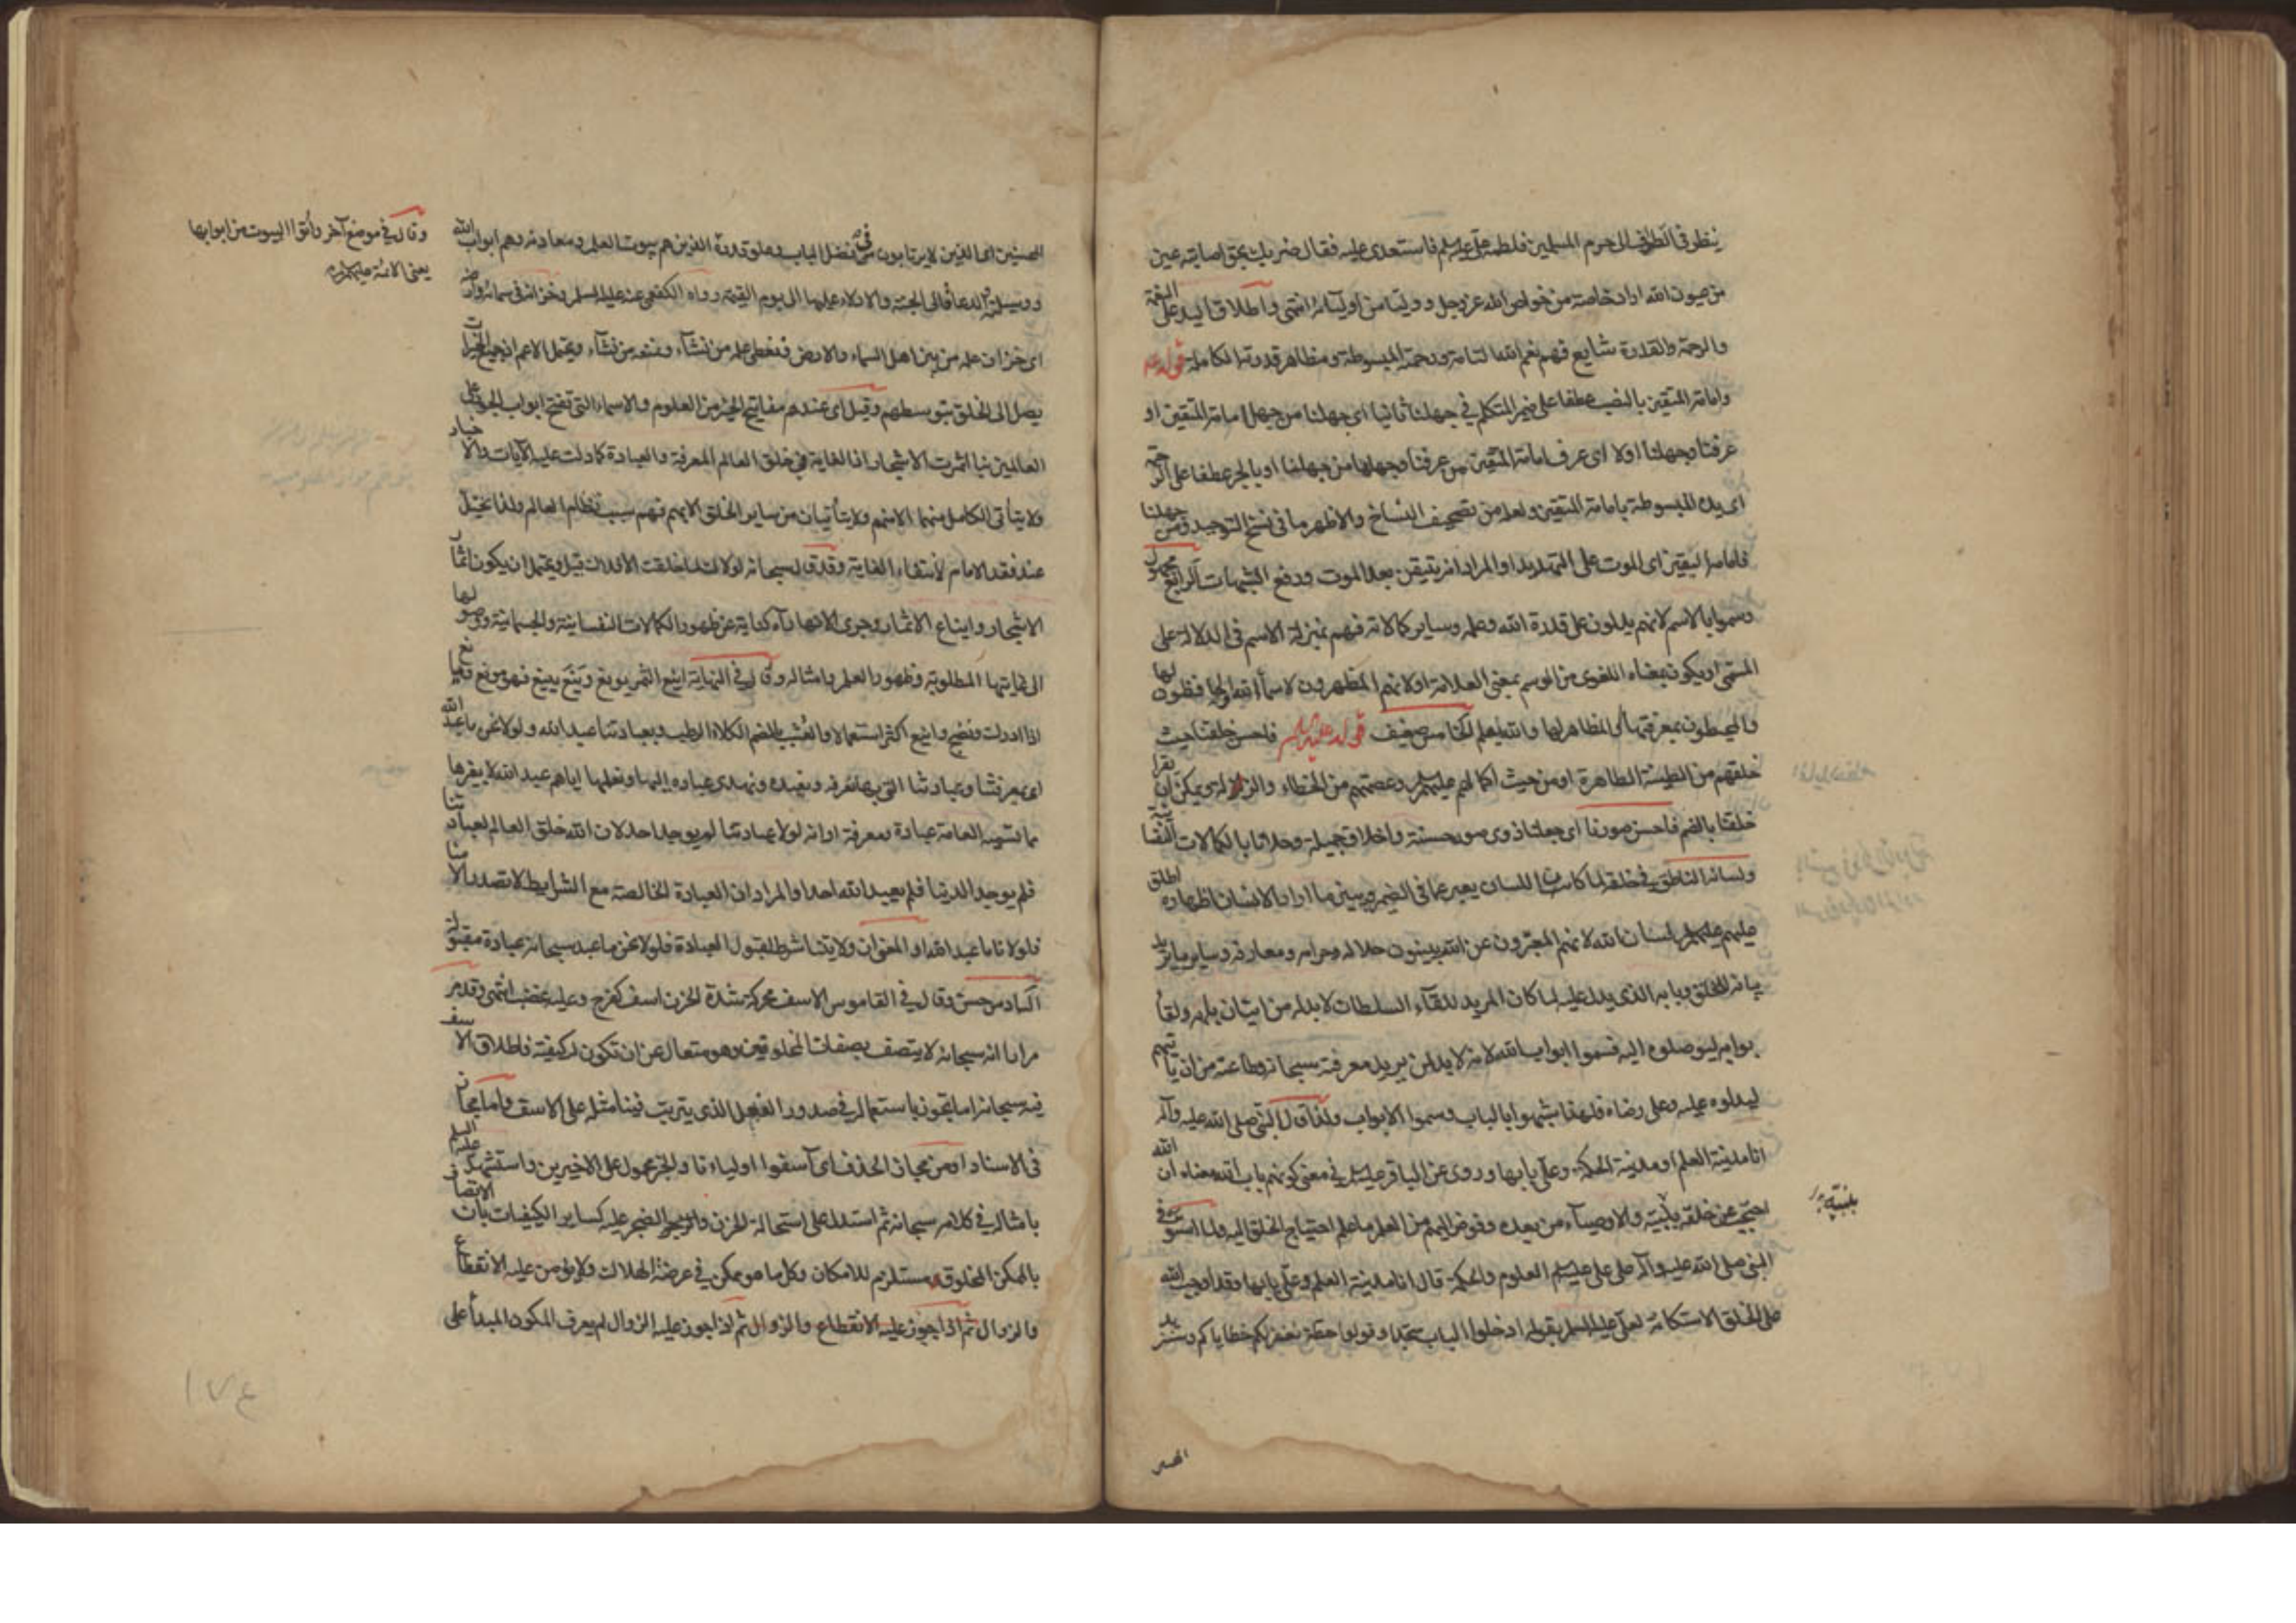 ينظر في الطواف الى حرم المسلمين فلطمه علي عليه السلم فاستعدى عليه فقال ضربك بحق اصابته عين
من عيون الله اراد خاصة من خواص الله عز وجل ووليا من اوليائه انتهى واطلاق اليد على النعمة
والرحمة والقدرة شايع فهم نعم الله التامة ورحمته المبسوطة ومظاهر قدرته الكاملة قوله عه
وامامة المتقين بالنصب عطفا على ضمير المتكلم في جهلنا ثانيا اى جهلنا من جهل امامة المتقين او
عرفنا وجهلنا اولا اى عرف امامة المتقين من عرفنا وجهلها من جهلنا او بالجر عطفا على الرحمة
اى يده المبسوطة بامامة المتقين ولعله من تصحيف النساخ والاظهر ما في نسخ التوحيد ومن جهلنا
فامامه اليقين اى الموت على التهديد او المراد انه يتيقن بعد الموت ورفع الشبهات الرابع مجهول
وسموا بالاسم لانهم يدلون على قدرة الله وعلمه وساير كمالاته فهم بمنزلة الاسم في الدلالة على
المسمى او يكون بمعناه اللغوى من الوسم بمعنى العلامة او لانهم المظهرون لاسماء الله او لها
والمحيطون بمعرفتها او المظاهر لها والله يعلم الخامس ضعيف قوله عليه السلم فاحسن خلقنا حيث
خلقهم من الطينة الطاهرة او من حيث اكمالهم عليهم السلم وعصمتهم من الخطاء والزلل ويمكن ان يقرأ
خلقنا بالضم فاحسن صورنا اى جعلنا ذوى صور حسنة واخلاق جميلة وحلانا بالكمالات النفسانية
ولسانه الناطق في خلقه لما كان اللسان يعبر عما في الضمير ويبين ما اراد الانسان اظهاره اطلق
عليهم عليهم السلم لسان الله لانهم المعبرون عن الله يبينون حلاله وحرامه ومعارفه وساير ما يريد
بيانه للخلق وبابه الذى يدل عليه لما كان المريد للقاء السلطان لا بد له من اتيان بابه ولقاء
بوابه ليوصلوه اليه فسموا ابواب الله لانه لا بد لمن يريد معرفته سبحانه وطاعته من ان ياتيهم
ليدلوه عليه وعلى رضاه فلهذا شبهوا بالباب وسموا الابواب ولذا قال النبي صلى الله عليه وآله
انا مدينة العلم او مدينة الحكمة وعلي بابها وروى عن الباقر عليه السلم في معنى كونهم باب الله معناه ان الله
احتجب عن خلقه بنبيه والاوصياء من بعده وفوض اليهم من العلم ما علم احتياج الخلق اليه ولما استوفى
النبي صلى الله عليه وآله على علي عليه السلم العلوم والحكمة قال انا مدينة العلم وعلي بابها وقد اوجب الله
على الخلق الاستكانة لعلي عليه السلم بقوله ادخلوا الباب سجدا وقولوا حطة نغفر لكم خطاياكم وسنزيد
بنبيه
المحسنين اى الذين لا يرتابون في فضل الباب وعلو قدره الذين هم بيوت العلم ومعادنه وهم ابواب الله
ووسيلته والدعاة الى الجنة والادلاء عليها الى يوم القيمة رواه الكفعمى عنه عليه السلم وخزانه في سمائه وارضه
اى خزان علمه من بين اهل السماء والارض فنعطى علمه من نشاء ونمنعه من نشاء ويحتمل الاعم اذ جميع الخيرات
يصل الى الخلق بتوسطهم وقيل اى عندهم مفاتيح الخير من العلوم والاسماء التي تفتح ابواب الجود على
العالمين بنا اثمرت الاشجار اذ الغاية في خلق العالم المعرفة والعبادة كما دلت عليه الآيات والاخبار
ولا يتأتى الكامل منهما الا منهم ولا يتأتيان من ساير الخلق الا بهم فهم سبب نظام العالم ولذا يختل
عند فقد الامام لانتفاء الغاية وقد قال سبحانه لولاك لما خلقت الافلاك قيل ويحتمل ان يكون اثمار
الاشجار وايناع الاثمار وجرى الانهار كناية عن ظهور الكمالات النفسانية والجسمانية ووصولها
الى غايتها المطلوبة وظهور العلم وامثاله وقال في النهاية اينع الثمر يونع وينع يينع فهو مونع ويانع
اذا ادرك ونضج واينع اكثر استعمالا والعشب بالضم الكلاء الرطب وبعبادتنا عبد الله ولولا نحن ما عبد الله
اى بمعرفتنا وعبادتنا التي بها نعرفه ونعبده ونهدى عباده اليها ونعلمها اياهم عبد الله لا بغيرها
مما تسميه العامة عبادة ومعرفة او انه لولا عبادتنا لم يوجد احد لان الله خلق العالم لعبادتنا
فلم يوجد الدنيا فلم يعبد الله احد او المراد ان العبادة الخالصة مع الشرايط لا تصدر الا منا
فلولانا ما عبد الله او المعنى ان ولايتنا شرط لقبول العبادة فلولا نحن ما عبد سبحانه عبادة مقبولة
السادس حسن وقال في القاموس الاسف محركة شدة الحزن اسف كفرح وعليه غضب انتهى وقد مر
مرارا انه سبحانه لا يتصف بصفات المخلوقين وهو متعال عن ان تكون له كيفية فاطلاق الاسف
فيه سبحانه اما تجوز باستعماله في صدور الفعل الذى يترتب فينا مثله على الاسف واما مجاز
في الاسناد او من مجاز الحذف اى آسفوا اولياءنا والخبر محمول على الاخيرين واستشهد عليه السلم
بامثاله في كلامه سبحانه ثم استدل على استحالة الحزن والضجر عليه كساير الكيفيات بان الاتصاف
بالممكن المخلوق مستلزم للامكان وكل ما هو ممكن في عرضة الهلاك ولا يؤمن عليه الانقطاع
والزوال ثم اذا جوز عليه الانقطاع والزوال ثم اذا جوز عليه الزوال لم يعرف المكون المبدأ على
وقال في موضع آخر وأتوا البيوت من ابوابها
يعنى الائمة عليهم السلم